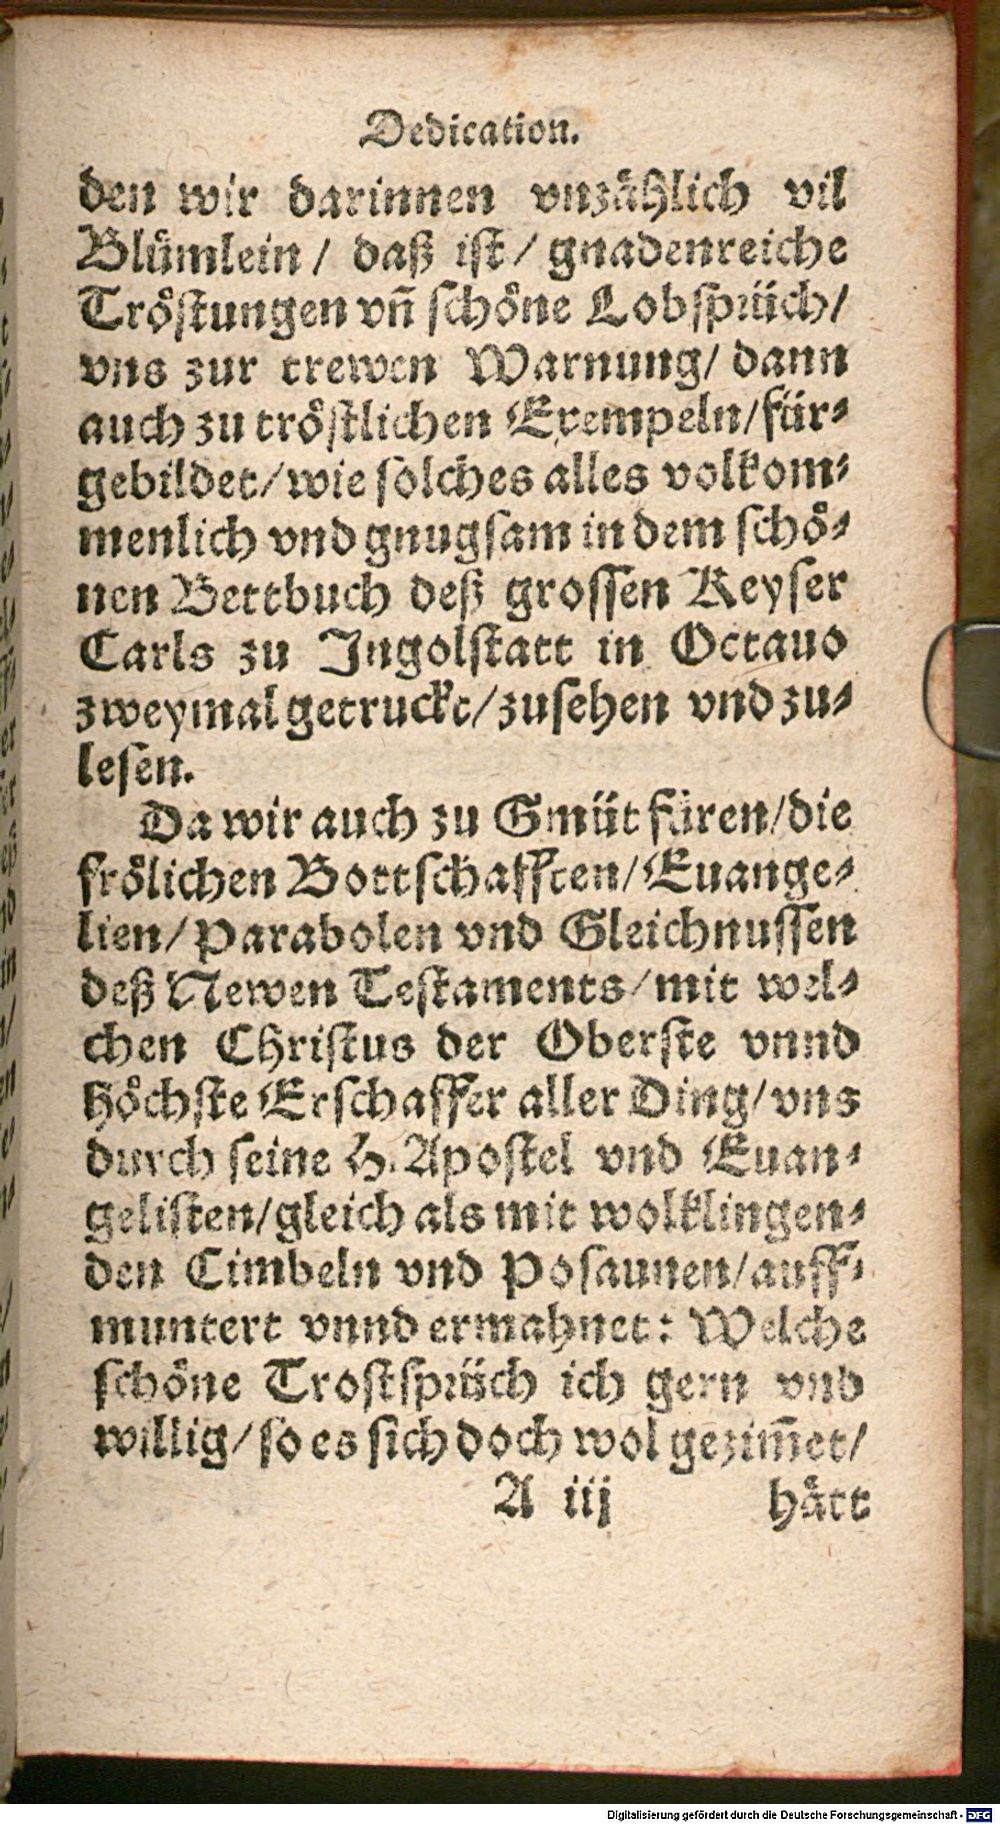 Dedication.
den wir darinnen vnzählich vil
Blümlein / daß ist / gnadenreiche
Tröstungen vñ schöne Lobsprüch /
vns zur trewen Warnung / dann
auch zu tröstlichen Exempeln / für-
gebildet / wie solches alles volkom-
menlich vnd gnugsam in dem schö-
nen Bettbuch deß grossen Keyser
Carls zu Ingolstatt in Octauo
zweymal getruckt / zusehen vnd zu-
lesen.
Da wir auch zu Gmüt füren / die
frölichen Bottschafften / Euange-
lien / Parabolen vnd Gleichnussen
deß Newen Testaments / mit wel-
chen Christus der Oberste vnnd
Höchste Erschaffer aller Ding / vns
durch seine H. Apostel vnd Euan-
gelisten / gleich als mit wolklingen-
den Cimbeln vnd Posaunen / auff-
muntert vnnd ermahnet: Welche
schöne Trostsprüch ich gern vnd
willig / so es sich doch wol gezim̃et /
A iij hätt
Digitalisierung gefördert durch die Deutsche Forschungsgemeinschaft - DFG